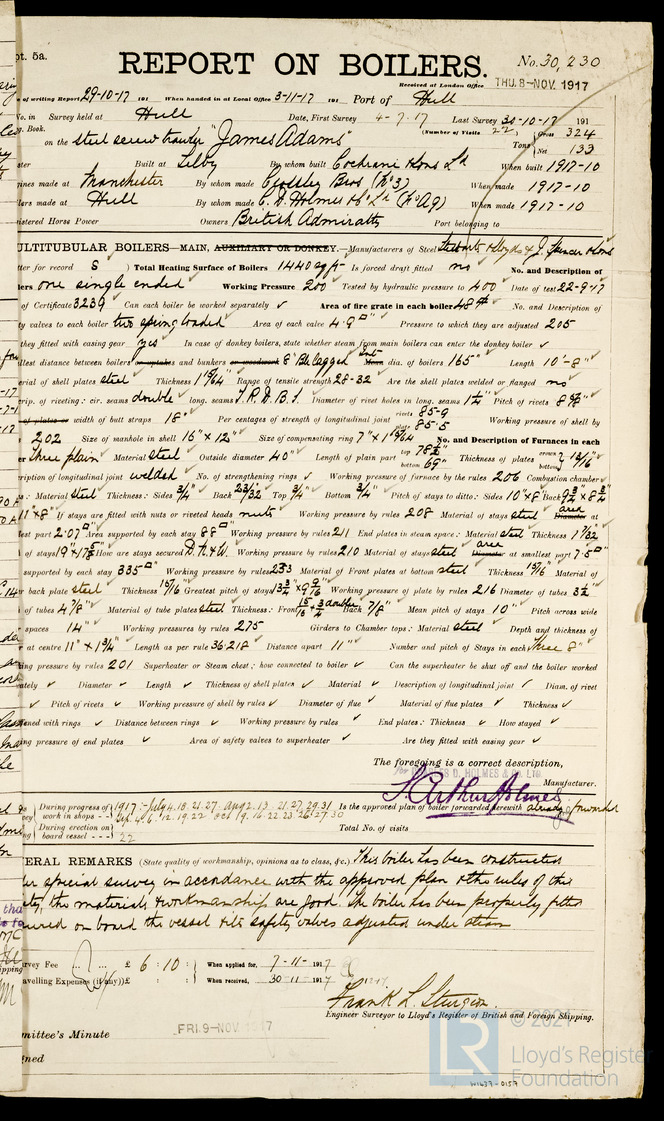 pt. 5a.
REPORT ON BOILERS.
No. 30,230
Received at London Office THU. 8-NOV. 1917
of writing Report 29-10-17 191 When handed in at Local Office 3-11-17 191 Port of Hull
No. in Survey held at Hull Date, First Survey 4-7-17 Last Survey 30-10-17 191
g. Book. (Number of Visits 22)
on the steel screw trawler "James Adams" Tons Gross 324 Net 133
ster Built at Selby By whom built Cochrane & Sons Ld When built 1917-10
ines made at Manchester By whom made Crossley Bros (No 3) When made 1917-10
lers made at Hull By whom made C. D. Holmes & Co Ld (No Ag) When made 1917-10
istered Horse Power Owners British Admiralty Port belonging to
ULTITUBULAR BOILERS—MAIN, AUXILIARY OR DONKEY.—Manufacturers of Steel Stewarts & Lloyds & J. Spencer & Sons
ter for record S ) Total Heating Surface of Boilers 1440 sq ft Is forced draft fitted no No. and Description of
lers one single ended Working Pressure 200 Tested by hydraulic pressure to 400 Date of test 22-9-17
of Certificate 3239 Can each boiler be worked separately ✓ Area of fire grate in each boiler 48 No. and Description of
ty valves to each boiler two spring loaded Area of each valve 4.9" Pressure to which they are adjusted 205
they fitted with easing gear yes In case of donkey boilers, state whether steam from main boilers can enter the donkey boiler ✓
llest distance between boilers or uptakes and bunkers or woodwork 8" Blr lagged Int dia. of boilers 165" Length 10'-8"
erial of shell plates steel Thickness 1 9/64 Range of tensile strength 28-32 Are the shell plates welded or flanged no
rip. of riveting: cir. seams double long. seams T.R.D.B.S. Diameter of rivet holes in long. seams 1 1/4" Pitch of rivets 8 5/8"
of plates or width of butt straps 18" Per centages of strength of longitudinal joint rivets 85.9 plate 85.5 Working pressure of shell by
202 Size of manhole in shell 16" x 12" Size of compensating ring 7" x 1 9/64 No. and Description of Furnaces in each
er three plain Material steel Outside diameter 40" Length of plain part top 78 1/2" bottom 69" Thickness of plates crown bottom 13/16"
cription of longitudinal joint welded No. of strengthening rings ✓ Working pressure of furnace by the rules 206 Combustion chamber
s: Material steel Thickness: Sides 3/4" Back 23/32 Top 3/4" Bottom 3/4" Pitch of stays to ditto: Sides 10" x 8" Back 9 3/4" x 8 3/4"
11" x 8" If stays are fitted with nuts or riveted heads nuts Working pressure by rules 208 Material of stays steel area Diameter at
lest part 2.07 Area supported by each stay 88 Working pressure by rules 211 End plates in steam space: Material steel Thickness 1 7/32
of stays 19" x 17 5/8" How are stays secured D.N.&W. Working pressure by rules 210 Material of stays steel area Diameter at smallest part 7.5
supported by each stay 335 Working pressure by rules 233 Material of Front plates at bottom steel Thickness 15/16" Material of
r back plate steel Thickness 15/16 Greatest pitch of stays 13 3/4" x 9 Working pressure of plate by rules 216 Diameter of tubes 3 1/2"
of tubes 4 7/8" Material of tube plates steel Thickness: Front 15/16 + 3/4 double Back 7/8" Mean pitch of stays 10" Pitch across wide
spaces 14" Working pressures by rules 275 Girders to Chamber tops: Material steel Depth and thickness of
er at centre 11" x 1 3/4" Length as per rule 36.218 Distance apart 11" Number and pitch of Stays in each three 8"
ing pressure by rules 201 Superheater or Steam chest; how connected to boiler ✓ Can the superheater be shut off and the boiler worked
ately ✓ Diameter ✓ Length ✓ Thickness of shell plates ✓ Material ✓ Description of longitudinal joint ✓ Diam. of rivet
✓ Pitch of rivets ✓ Working pressure of shell by rules ✓ Diameter of flue ✓ Material of flue plates ✓ Thickness ✓
ened with rings ✓ Distance between rings ✓ Working pressure by rules ✓ End plates: Thickness ✓ How stayed ✓
ng pressure of end plates ✓ Area of safety valves to superheater ✓ Are they fitted with easing gear ✓
The foregoing is a correct description,
for CHARLES D. HOLMES & CO. LTD.
Arthur Holmes Manufacturer.
During progress of work in shops - - 1917:- July 4. 18. 21. 27. Aug 2. 13. 21. 27. 29. 31 Sep 4. 6. 12. 19. 22 Oct 9. 16. 22. 23. 26. 27. 30
During erection on board vessel - - - 22
Is the approved plan of boiler forwarded herewith already forwarded
Total No. of visits
ERAL REMARKS (State quality of workmanship, opinions as to class, &c.) This boiler has been constructed
er special survey in accordance with the approved plan & the rules of this
ety, the materials & workmanship are good. The boiler has been properly fitted
ured on board the vessel & its safety valves adjusted under steam
rvey Fee ... ... £ 6 : 10 : When applied for, 7-11-1917
avelling Expenses (if any) £ : : When received, 30-11-1917
Frank L. Sturgeon
Engineer Surveyor to Lloyd's Register of British and Foreign Shipping.
mittee's Minute FRI. 9-NOV. 1917
gned
© 2021
LR
Lloyd's Register
Foundation
W1437-0157